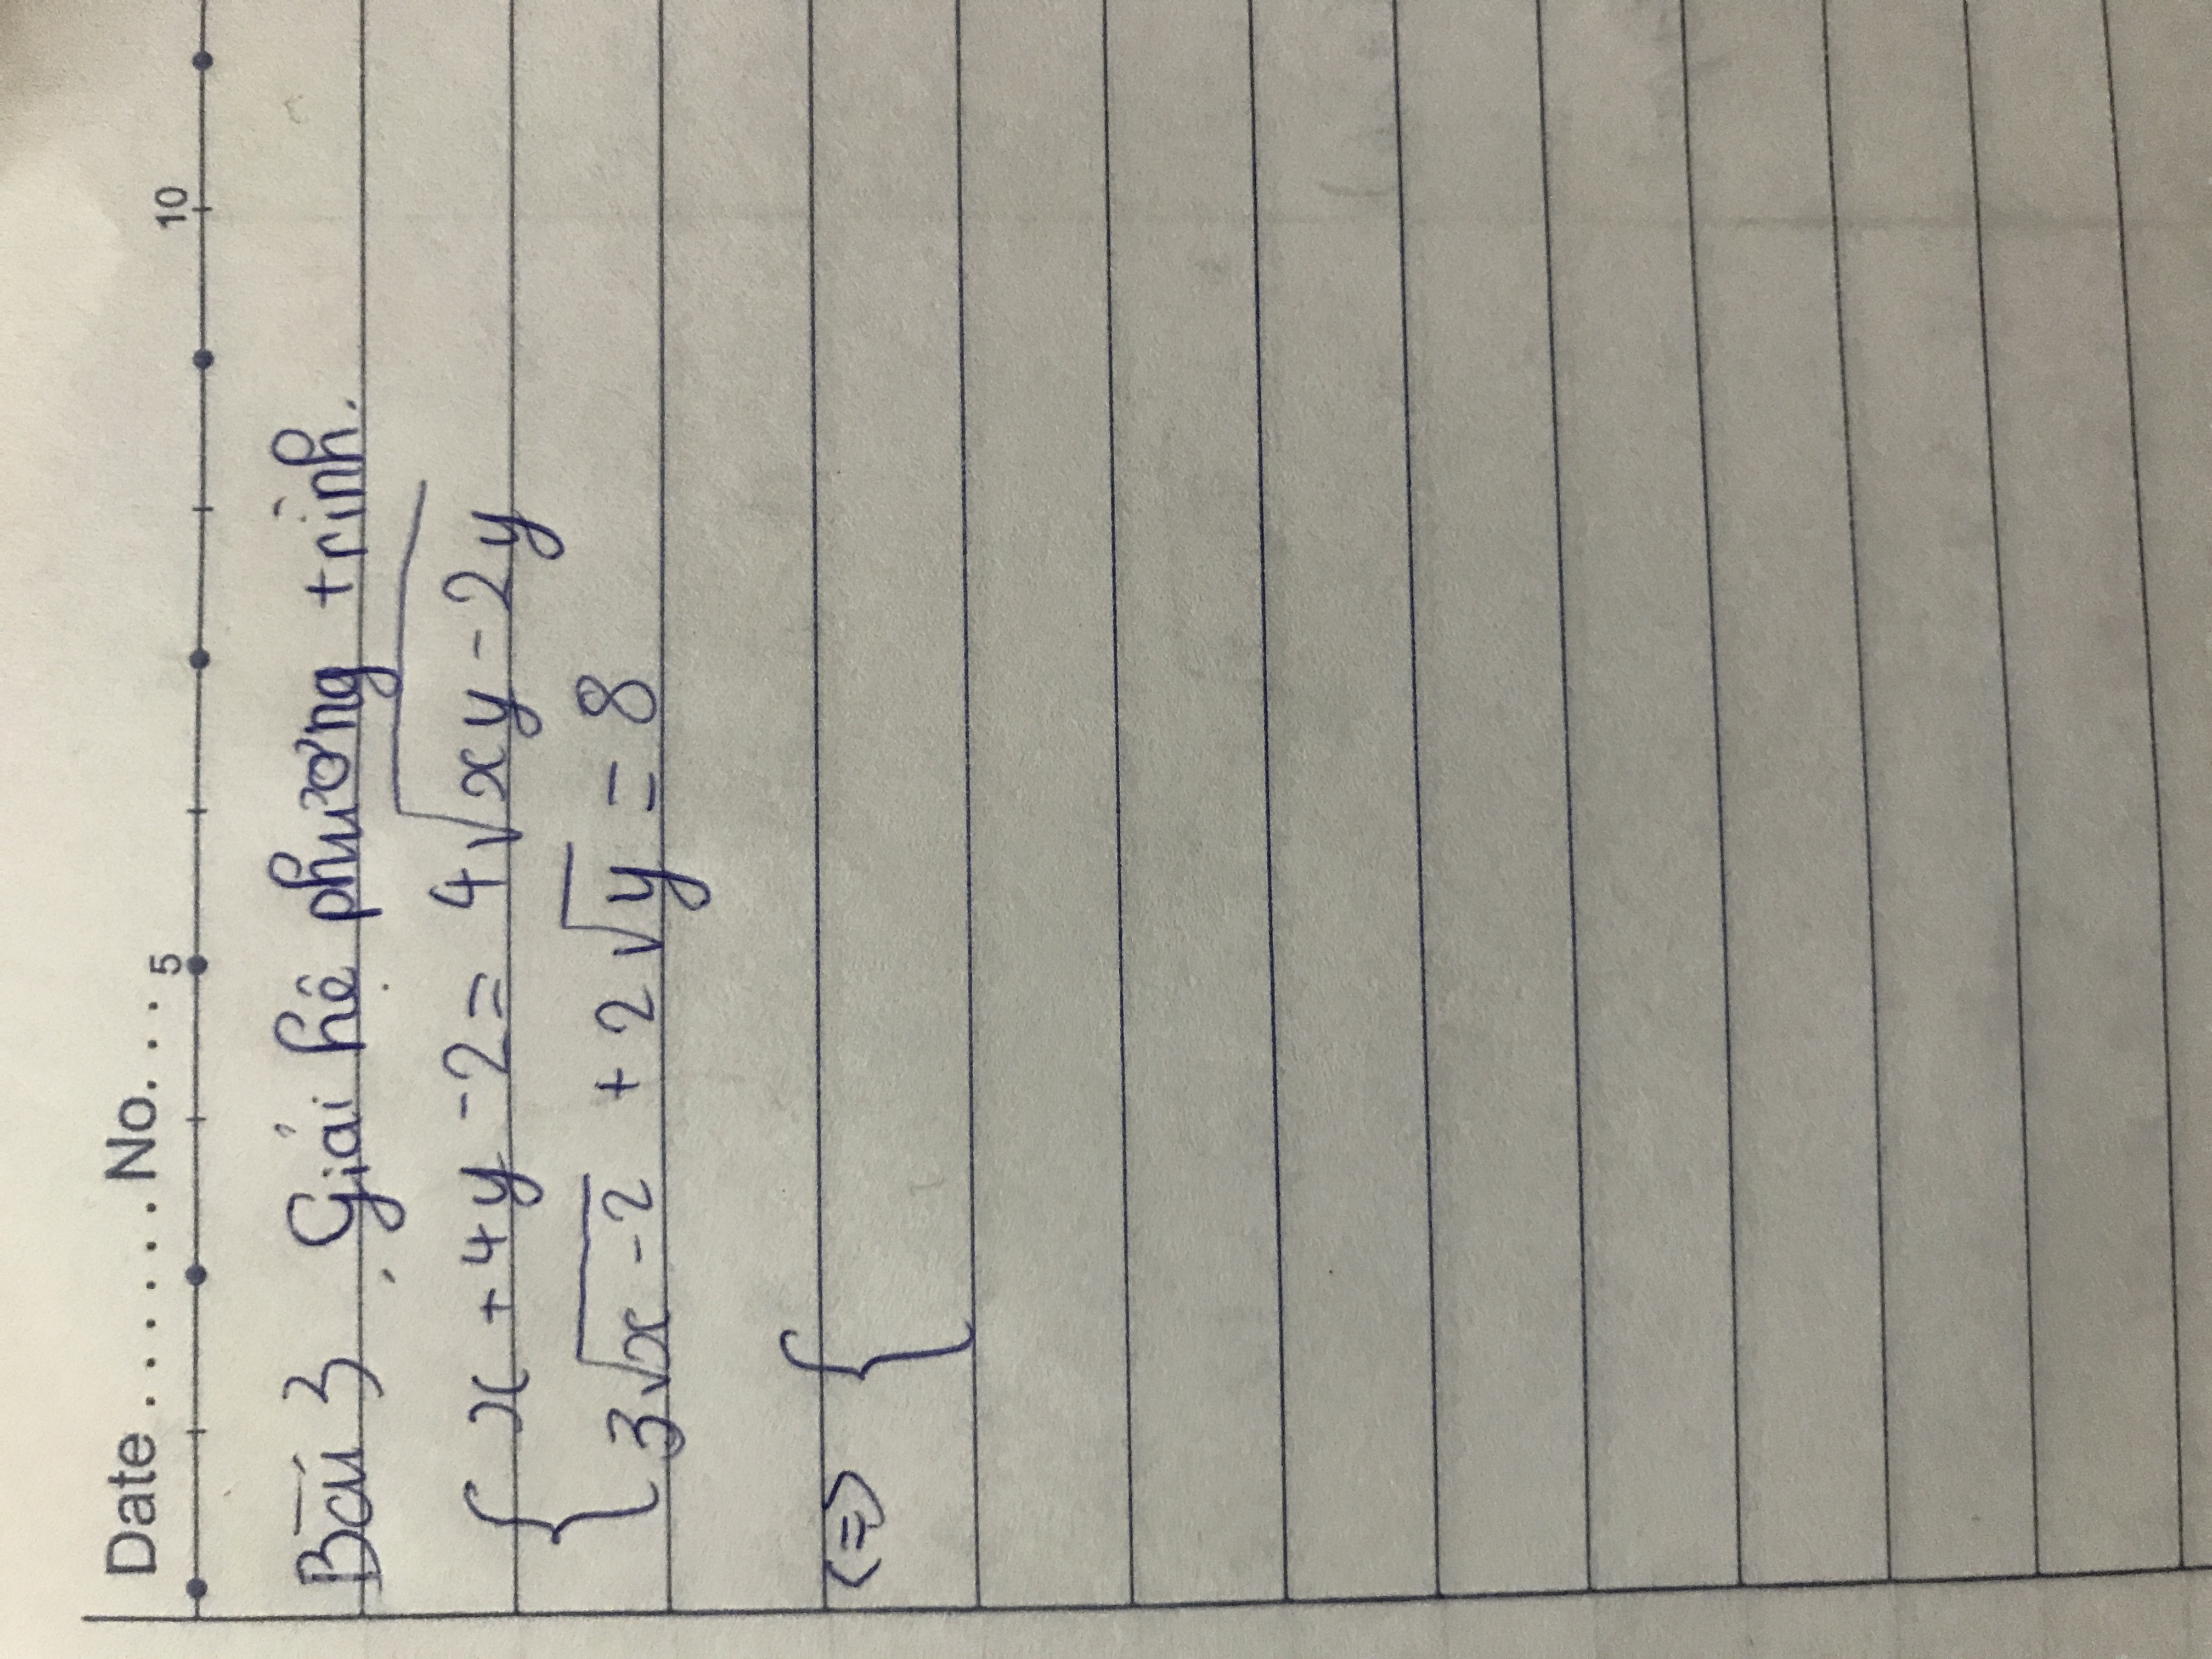 Date.......No....
5 10
Bài 3 Giải hệ phương trình.
{ x + 4y - 2 = 4√(xy - 2y)
{ 3√(x - 2) + 2√y = 8
<=> {